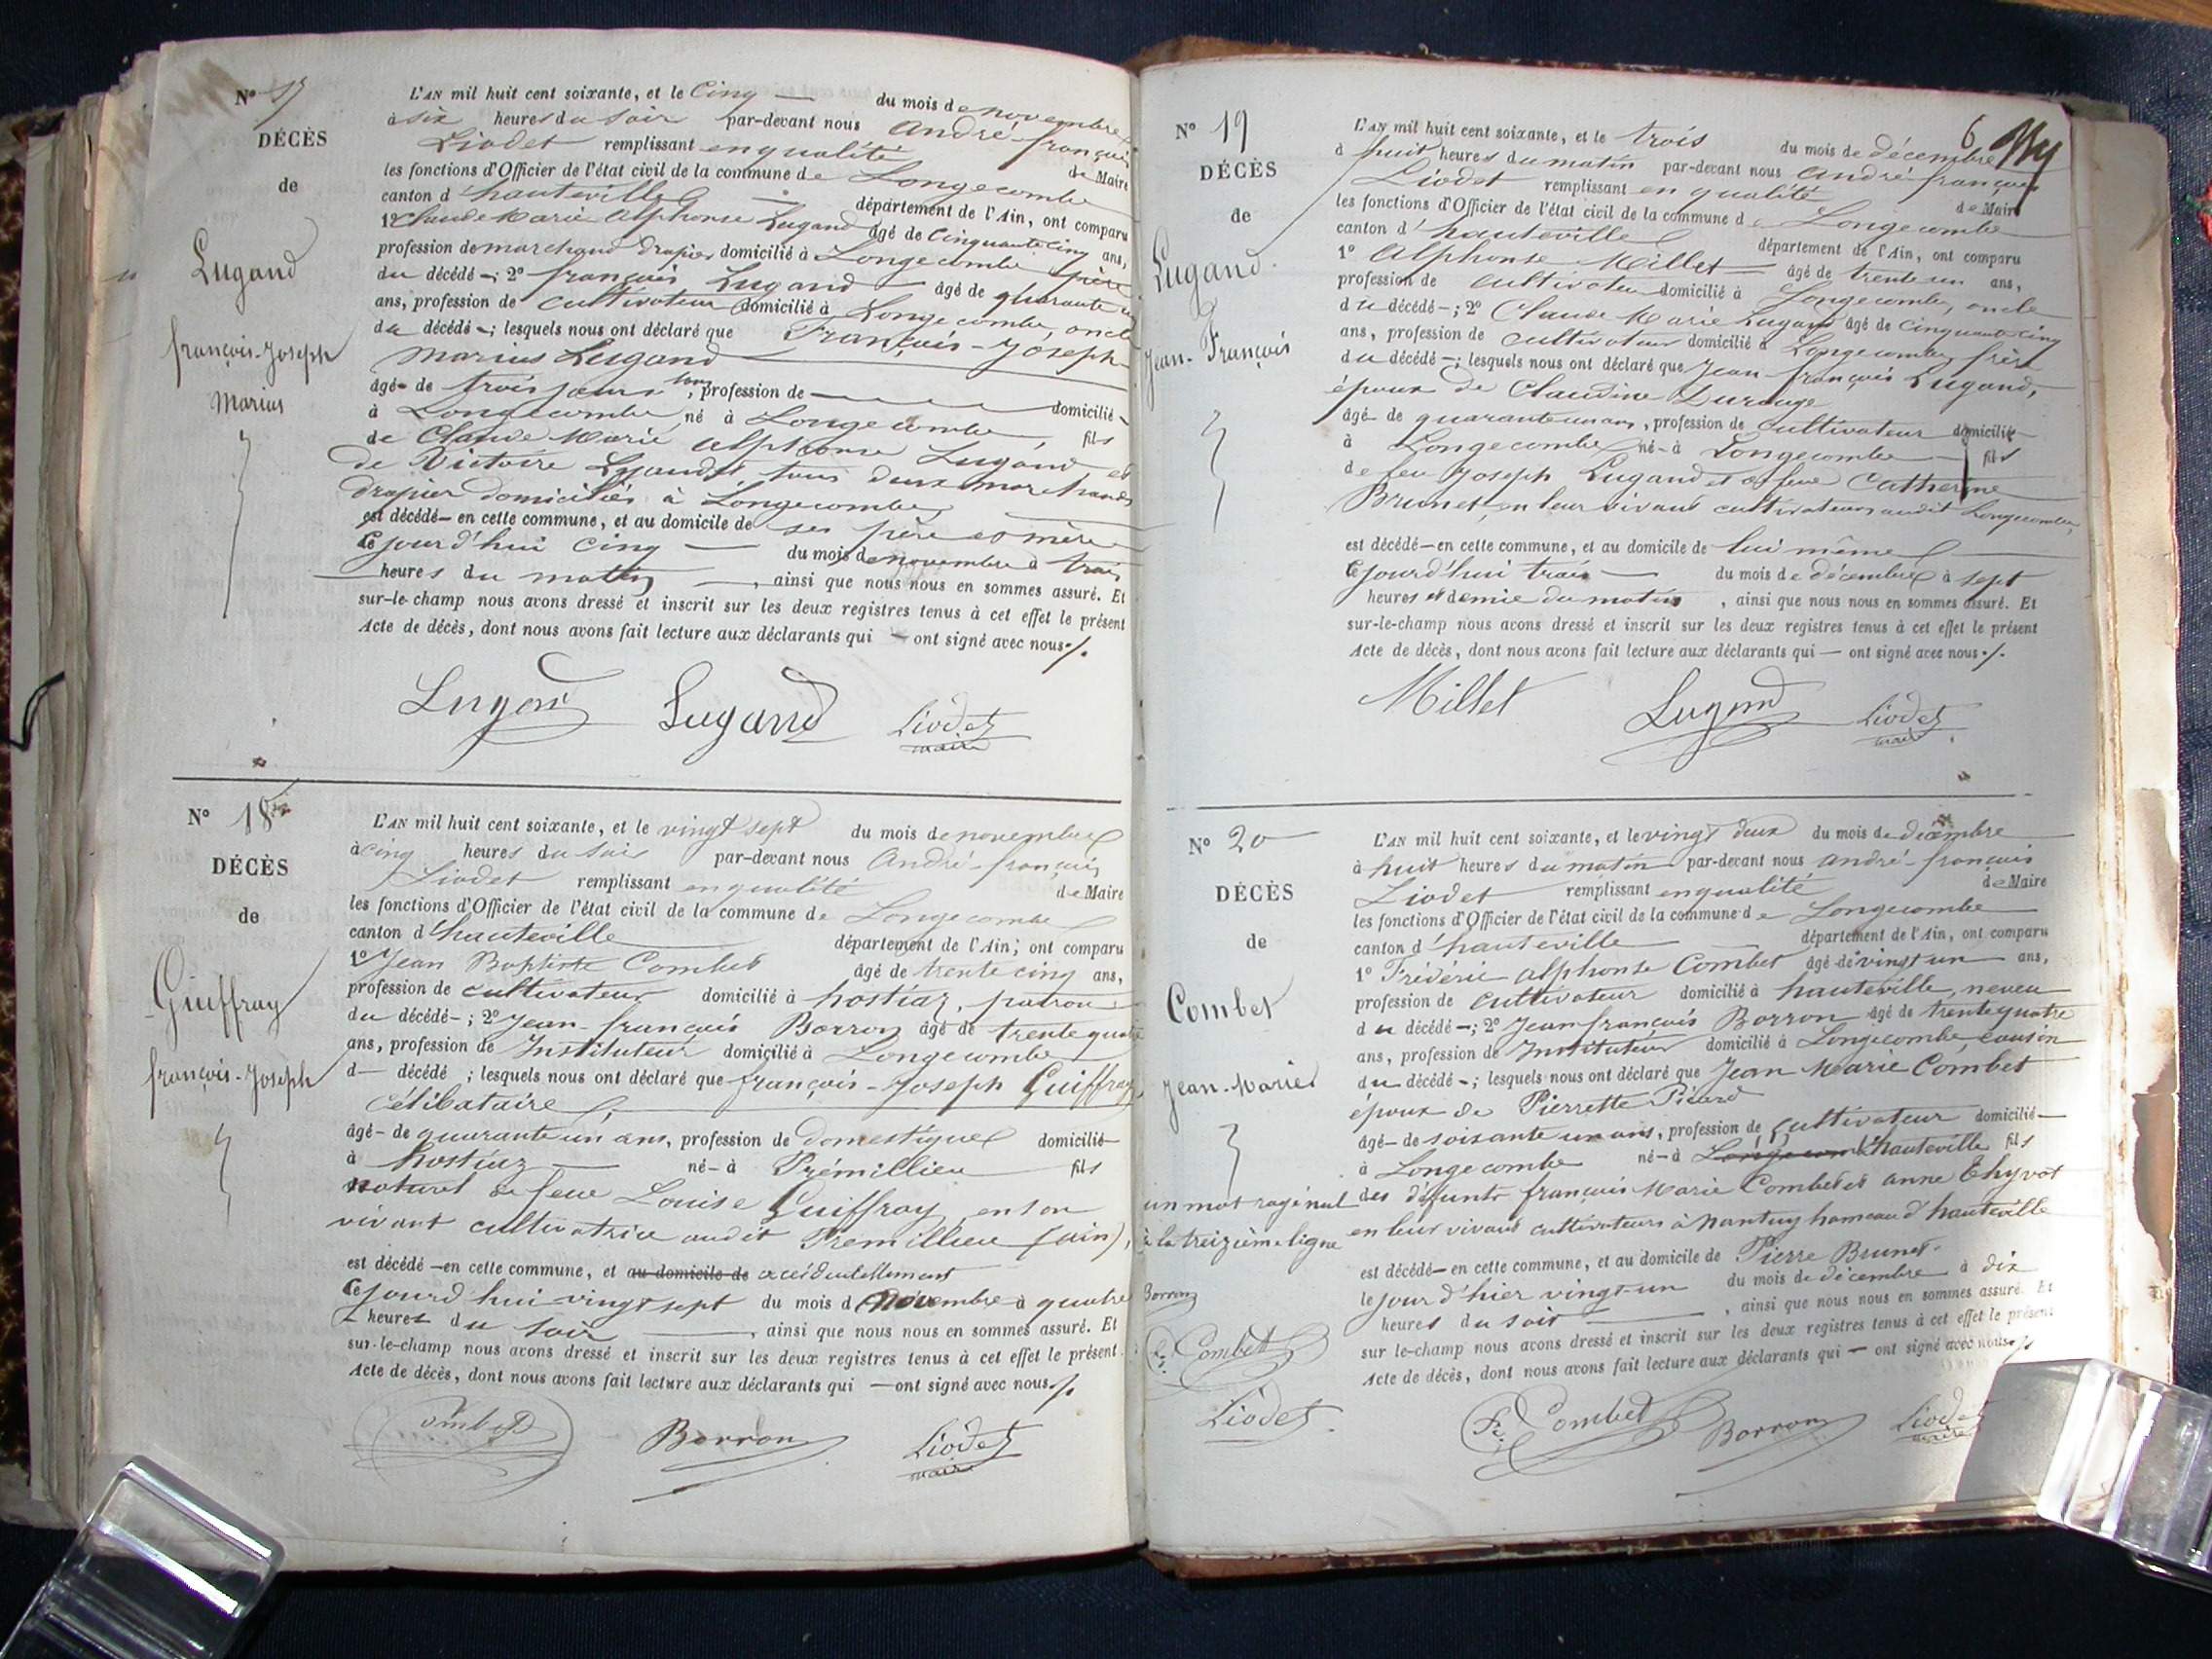 N° 17
DÉCÈS
de
Lugand
françois-Joseph
Marius
L'AN mil huit cent soixante, et le Cinq du mois de novembre
à six heures du soir par-devant nous André-françois
Liodet remplissant en qualité de Maire
les fonctions d'Officier de l'état civil de la commune de Longecombe
canton d'hauteville département de l'Ain, ont comparu
1° Claude Marie Alphonse Lugand âgé de Cinquante cinq ans,
profession de marchand drapier domicilié à Longecombe père
du décédé ; 2° françois Lugand âgé de quarante
ans, profession de cultivateur domicilié à Longecombe, oncle
du décédé ; lesquels nous ont déclaré que François-Joseph
Marius Lugand
âgé de trois jours, profession de domicilié
à Longecombe, né à Longecombe, fils
de Claude Marie Alphonse Lugand et
de Victoire tous deux marchands
drapier domiciliés à Longecombe,
est décédé en cette commune, et au domicile de ses père et mère
Ce jourd'hui cinq du mois de novembre à trois
heures du matin, ainsi que nous nous en sommes assuré. Et
sur-le-champ nous avons dressé et inscrit sur les deux registres tenus à cet effet le présent
Acte de décès, dont nous avons fait lecture aux déclarants qui — ont signé avec nous ./.
Lugand Lugand Liodet
maire
N° 18
DÉCÈS
de
Guiffray
françois-Joseph
L'AN mil huit cent soixante, et le vingt sept du mois de novembre
à cinq heures du soir par-devant nous André-françois
Liodet remplissant en qualité de Maire
les fonctions d'Officier de l'état civil de la commune de Longecombe
canton d'hauteville département de l'Ain, ont comparu
1° Jean Baptiste Combet âgé de trente cinq ans,
profession de cultivateur domicilié à hostiaz, patron
du décédé ; 2° Jean-françois Borron âgé de trente quatre
ans, profession de Instituteur domicilié à Longecombe
d décédé ; lesquels nous ont déclaré que françois-Joseph Guiffray
célibataire,
âgé de quarante un ans, profession de domestique domicilié
à hostiaz né à Prémillieu fils
naturel de feue Louise Guiffray, en son
vivant cultivatrice audit Prémillieu (ain),
est décédé en cette commune, et au domicile de accidentellement
Ce jourd'hui vingt sept du mois de novembre à quatre
heures du soir, ainsi que nous nous en sommes assuré. Et
sur-le-champ nous avons dressé et inscrit sur les deux registres tenus à cet effet le présent
Acte de décès, dont nous avons fait lecture aux déclarants qui — ont signé avec nous ./.
Combet Borron Liodet
maire
6
N° 19
DÉCÈS
de
Lugand
Jean-François
L'AN mil huit cent soixante, et le trois du mois de décembre
à huit heures du matin par-devant nous André-françois
Liodet remplissant en qualité de Maire
les fonctions d'Officier de l'état civil de la commune de Longecombe
canton d'hauteville département de l'Ain, ont comparu
1° Alphonse Millet âgé de trente un ans,
profession de cultivateur domicilié à Longecombe, oncle
du décédé ; 2° Claude Marie Lugand âgé de cinquante cinq
ans, profession de cultivateur domicilié à Longecombe, frère
du décédé ; lesquels nous ont déclaré que Jean-françois Lugand,
époux de Claudine
âgé de quarante un ans, profession de cultivateur domicilié
à Longecombe né à Longecombe fils
de feu Joseph Lugand et de feue Catherine
Brunet, en leur vivant cultivateurs audit Longecombe,
est décédé en cette commune, et au domicile de lui même
Ce jourd'hui trois du mois de décembre à sept
heures et demie du matin, ainsi que nous nous en sommes assuré. Et
sur-le-champ nous avons dressé et inscrit sur les deux registres tenus à cet effet le présent
Acte de décès, dont nous avons fait lecture aux déclarants qui — ont signé avec nous ./.
Millet Lugand Liodet
maire
N° 20
DÉCÈS
de
Combet
Jean-Marie
L'AN mil huit cent soixante, et le vingt deux du mois de décembre
à huit heures du matin par-devant nous André-françois
Liodet remplissant en qualité de Maire
les fonctions d'Officier de l'état civil de la commune de Longecombe
canton d'hauteville département de l'Ain, ont comparu
1° Frédéric Alphonse Combet âgé de vingt un ans,
profession de cultivateur domicilié à hauteville, neveu
du décédé ; 2° Jean françois Borron âgé de trente quatre
ans, profession de Instituteur domicilié à Longecombe, cousin
du décédé ; lesquels nous ont déclaré que Jean Marie Combet
époux de Pierrette Picard
âgé de soixante un ans, profession de cultivateur domicilié
à Longecombe né à Longecombe hauteville fils
des défunts françois Marie Combet et anne Thyvot
en leur vivant cultivateurs à Nantuy hameau d'hauteville
est décédé en cette commune, et au domicile de Pierre Brunet
le jour d'hier vingt-un du mois de décembre à dix
heures du soir, ainsi que nous nous en sommes assuré. Et
sur le-champ nous avons dressé et inscrit sur les deux registres tenus à cet effet le présent
Acte de décès, dont nous avons fait lecture aux déclarants qui — ont signé avec nous ./.
un mot rayé nul
à la treizième ligne
Borron
F. Combet
Liodet
F. Combet Borron Liodet
maire